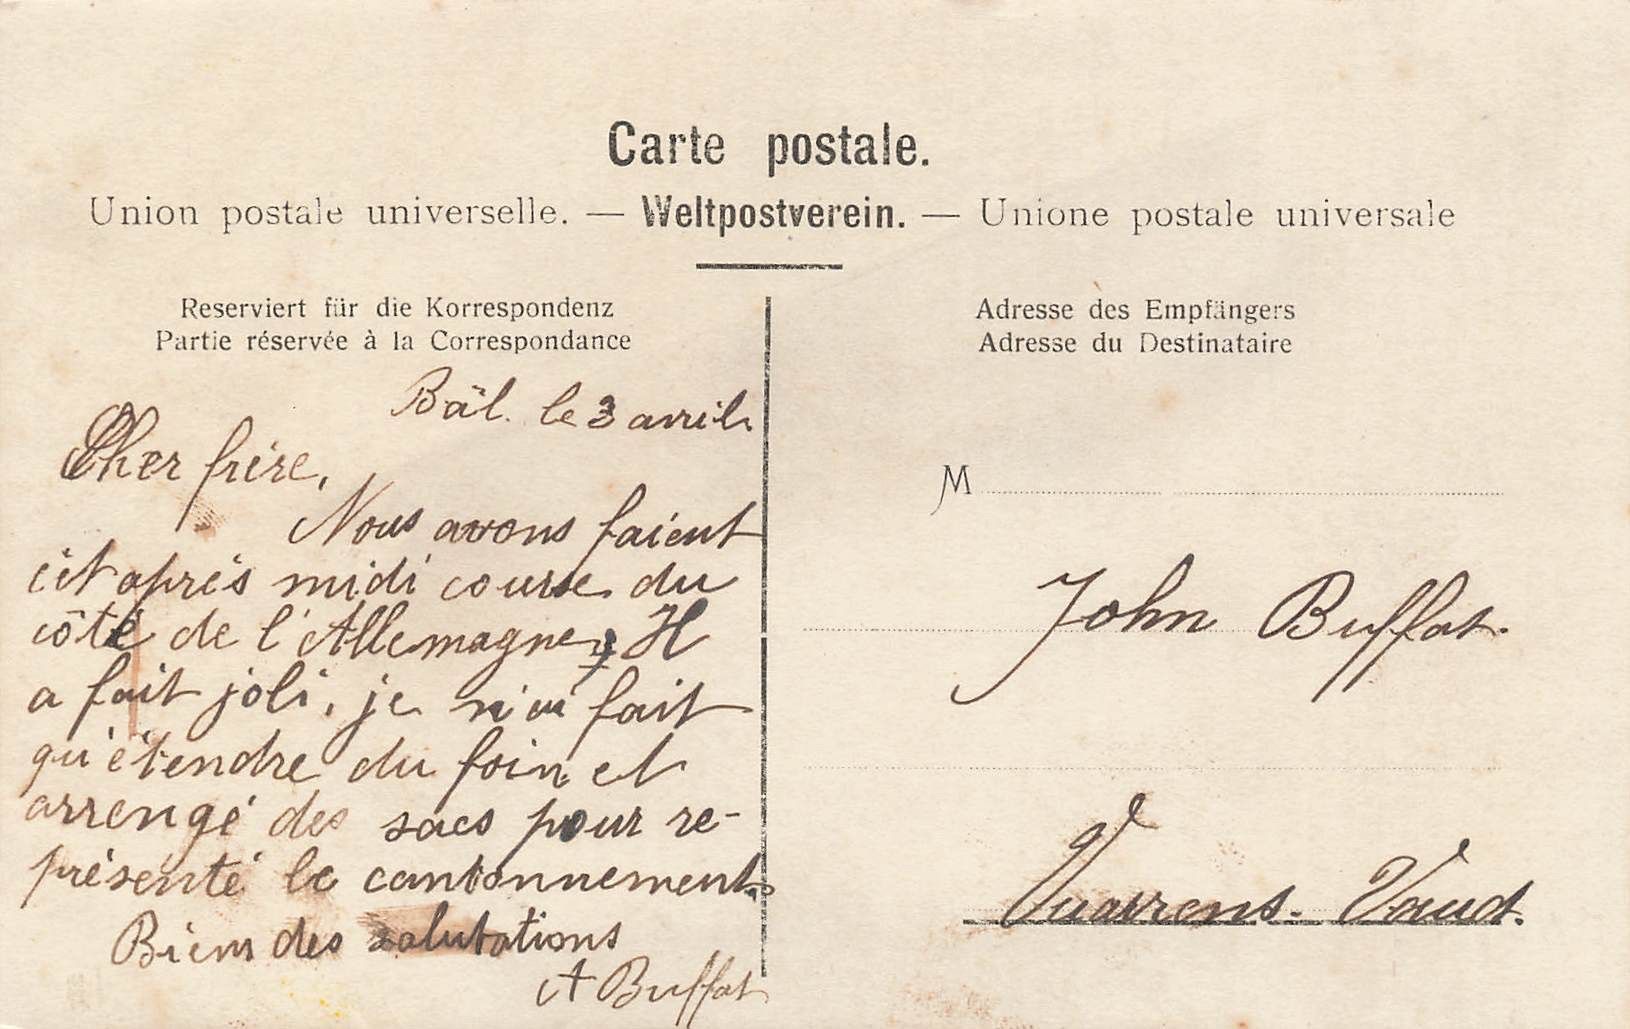 Carte postale.
Union postale universelle. — Weltpostverein. — Unione postale universale
Reserviert für die Korrespondenz
Partie réservée à la Correspondance
Bâl. le 3 avril.
Cher frère,
Nous avons faient
cet après midi course du
côté de l'Allemagne, Il
a fait joli, je n'ai fait
qu'étendre du foin et
arrengé des sacs pour re-
présenté le cantonnement.
Bien des salutations
A Buffat
Adresse des Empfängers
Adresse du Destinataire
M
John Buffat.
Vuarrens. Vaud.